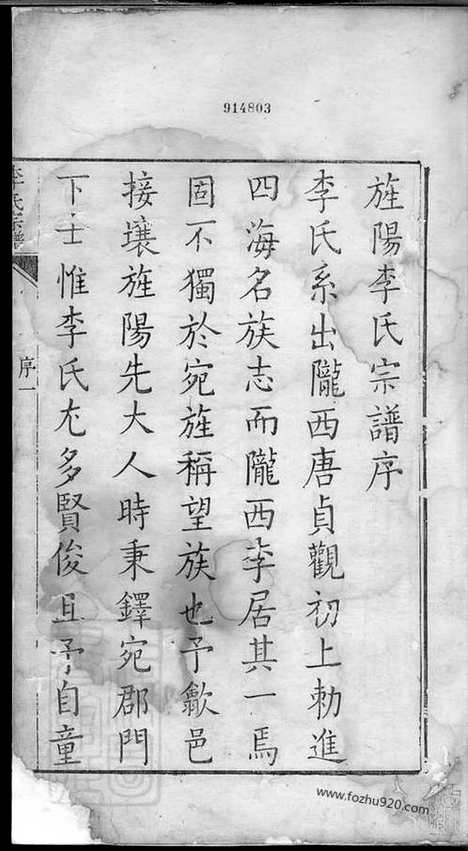 914803
旌陽李氏宗譜序
李氏系出隴西唐貞觀初上勅進
四海名族志而隴西李居其一焉
固不獨於宛旌稱望族也予歙邑
接壤旌陽先大人時秉鐸宛郡門
下士惟李氏尤多賢俊且予自童
李氏宗譜
序一
www.fozhu920.com